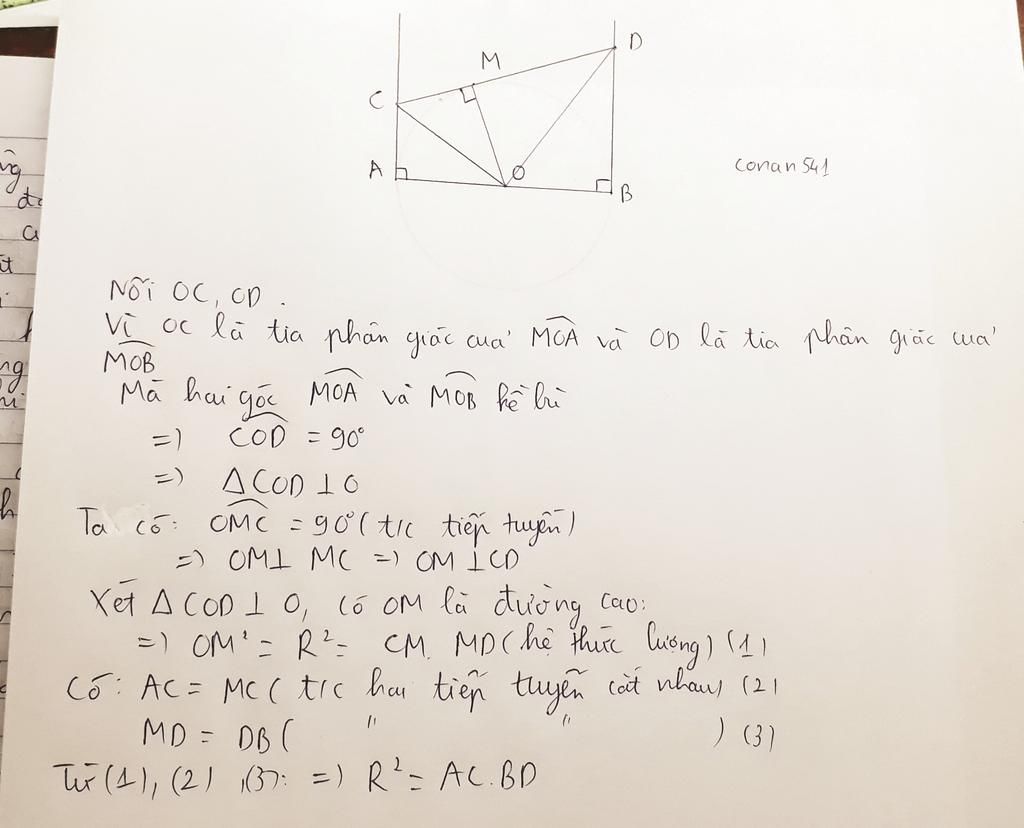 M
D
C
A
O
B
conan541
Nối OC, OD.
Vì OC là tia phân giác của MOA và OD là tia phân giác của
MOB
Mà hai góc MOA và MOB kề bù
=) COD = 90°
=) ΔCOD ⊥ O
Ta có: OMC = 90° (t/c tiếp tuyến)
=) OM ⊥ MC =) OM ⊥ CD
Xét ΔCOD ⊥ O, có OM là đường cao:
=) OM² = R² = CM. MD (hệ thức lượng) (1)
Có: AC = MC (t/c hai tiếp tuyến cắt nhau) (2)
MD = DB ( " " ) (3)
Từ (1), (2), (3): =) R² = AC.BD